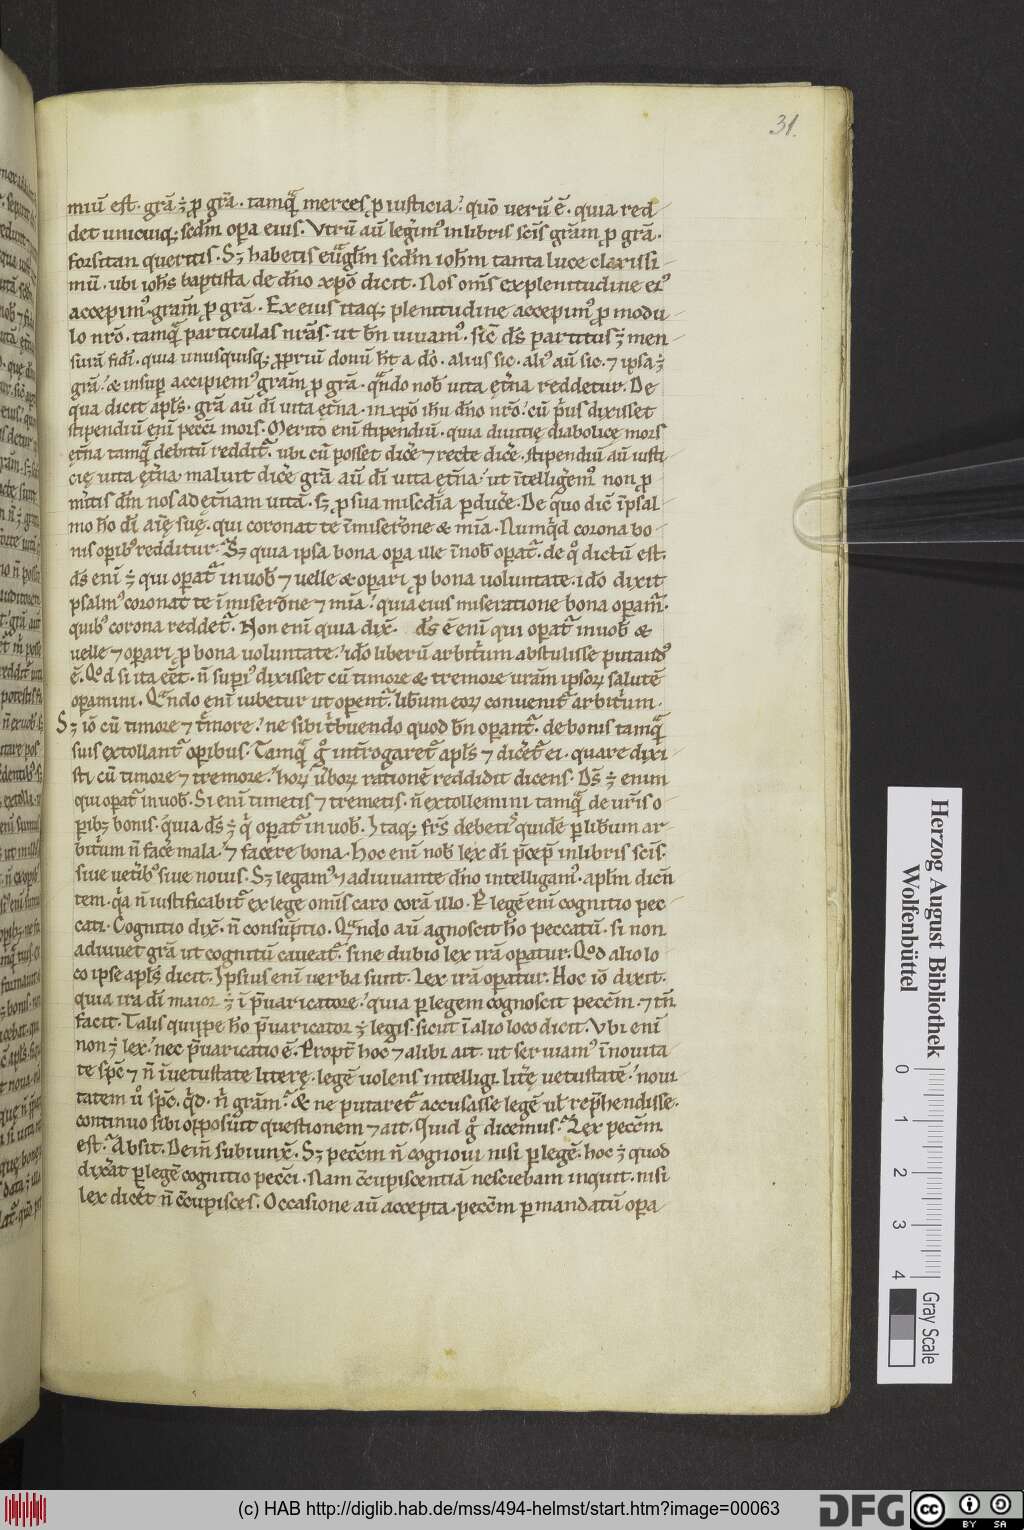 31.
miū est. grã ÷ ꝓ grã. tamq̃ merces ꝓ iusticia? quō uerū ē. quia red
det unicuiq; scdm̄ oꝑa eius. Vtrū aū legim' in libris scīs grãm ꝓ grã.
forsitan queritis. Sꝫ habetis euãglm̄ scdm̄ iohm̄ tanta luce clarissi
mū. ubi iohs baptista de dn̄o xp̄o dicit. Nos om̄s ex plenitudine ei'
accepim' grãm ꝓ grã. Ex eius itaq; plenitudine accepim' ꝓ modu
lo nr̄o. tamq̃ particulas nr̄as. ut bn̄ uiuam'. sic̄ ds̄ partitus ÷ men
surã fidi. quia unusquisq; ꝓpriū donū ht̄ a dō. alius sic. ali' aū sic. ⁊ ipsa ÷
grã. & insuꝑ accipiem' grãm ꝓ grã. qn̄do nob̄ uita ęt̄na reddetur. De
qua dicit apl̄s. grã aū dī uita ęt̄na. in xp̄o ihū dn̄o nr̄o? cū p̄us dixisset
stipendiū enī pecc̄i mors. Merito enī stipendiū. quia diuitię diabolice mors
ęt̄na tamq̃ debitū reddit̄. ubi cū posset dic̄e ⁊ recte dic̄e. stipendiū aū iusti
cię uita ęt̄na. maluit dic̄e grã aū dī uita ęt̄na? ut īntelligem' non ꝓ
m̄itis dm̄ nos ad et̄nam uitã. sꝫ ꝓ sua misc̄dia ꝑduc̄e. De quo dic̄ in psal
mo ho dī aīę suę. qui coronat te ī miser̄one & mīa. Numq̄d corona bo
nis oꝑib' redditur. Sꝫ quia ipsa bona oꝑa ille ī nob̄ oꝑat̄. de q° dictū est.
ds̄ enī ÷ qui oꝑat̄ in uob̄ ⁊ uelle & oꝑari ꝓ bona uoluntate. idō dixit
psalm' coronat te ī miserōne ⁊ mīa? quia eius miseratione bona oꝑam̄.
quib' corona reddet̄. Non enī quia dix̄. ds̄ ē enī qui oꝑat̄ in uob̄ &
uelle ⁊ oꝑari ꝓ bona uoluntate? idō liberū arbit̄um abstulisse putand'
ē. Qd̄ si ita eēt. n̄ suꝑi' dixisset cū timore & tremore uram ipsoꝝ salutē
oꝑamini. Qn̄do enī iubetur ut oꝑent̄. lib̄um eoꝝ conuenit̄ arbit̄um.
Sꝫ iō cū timore ⁊ t̄more? ne sibi t̄buendo quod bn̄ oꝑant̄. de bonis tamq̃
suis extollant̄ oꝑibus. Tamq̃ g° int̄rogaret̄ apl̄s ⁊ dic̄et̄ ei. quare dixi
sti cū timore ⁊ tremore? hoꝝ ūboꝝ rationē reddidit dicens. Ds̄ ÷ enim
qui oꝑat̄ in uob̄. Si enī timetis ⁊ tremetis. n̄ extollemini tamq̃ de uris o
ꝑibꝫ bonis. quia ds̄ ÷ q' oꝑat̄ in uob̄. Itaq; frs̄ debetis quidē ꝑ lib̄um ar
bit̄um n̄ facē mala? ⁊ facere bona. Hoc enī nob̄ lex dī p̄cep̄ in libris scīs.
siue uet̄ib' siue nouis. Sꝫ legam' ⁊ adiuuante dn̄o intelligam'. aplm̄ dicn̄
tem. q̄a n̄ iustificabit̄ ex lege om̄is caro corã illo. P legē enī cognitio pec
cati. Cognitio dix̄. n̄ consūptio. Qn̄do aū agnoscit ho peccatū. si non
adiuuet grã ut cognitū caueat̄. sine dubio lex irã oꝑatur. Qd̄ alio lo
co ipse apl̄s dicit. Ipsius enī uerba sunt. Lex irã oꝑatur. Hoc iō dixit.
quia ira dī maior ÷ ī p̄uaricatore? quia ꝑ legem cognoscit pecc̄m. ⁊ tn̄
facit. Talis quippe ho p̄uaricator ÷ legis. sicut ī alio loco dicit. Vbi enī
non ÷ lex? nec p̄uaricatio ē. Propt̄ hoc ⁊ alibi ait. ut seruiam' ī nouita
te spc̄ ⁊ n̄ ī uetustate litere. legē uolens intelligi lit̄ę uetustatē? noui
tatem u° spc̄. q̄d. n̄ grãm? & ne putaret̄ accusasse legē ul̄ rep̄hendisse.
continuo sibi opposuit questionem ⁊ ait. Quid g° dicemus? Lex pecc̄m
est? Absit. Dein̄ subiunx̄. Sꝫ pecc̄m n̄ cognoui nisi ꝑ legē. hoc ÷ quod
dixāt ꝑ legē cognitio pecc̄i. Nam cc̄upiscentiã nesciebam inquit. nisi
lex dicet̄ n̄ cc̄upisces. Occasione aū accepta. pecc̄m ꝑ mandatū oꝑa
Herzog August Bibliothek
Wolfenbüttel
0 1 2 3 4
Gray Scale
(c) HAB http://diglib.hab.de/mss/494-helmst/start.htm?image=00063
DFG
cc BY SA